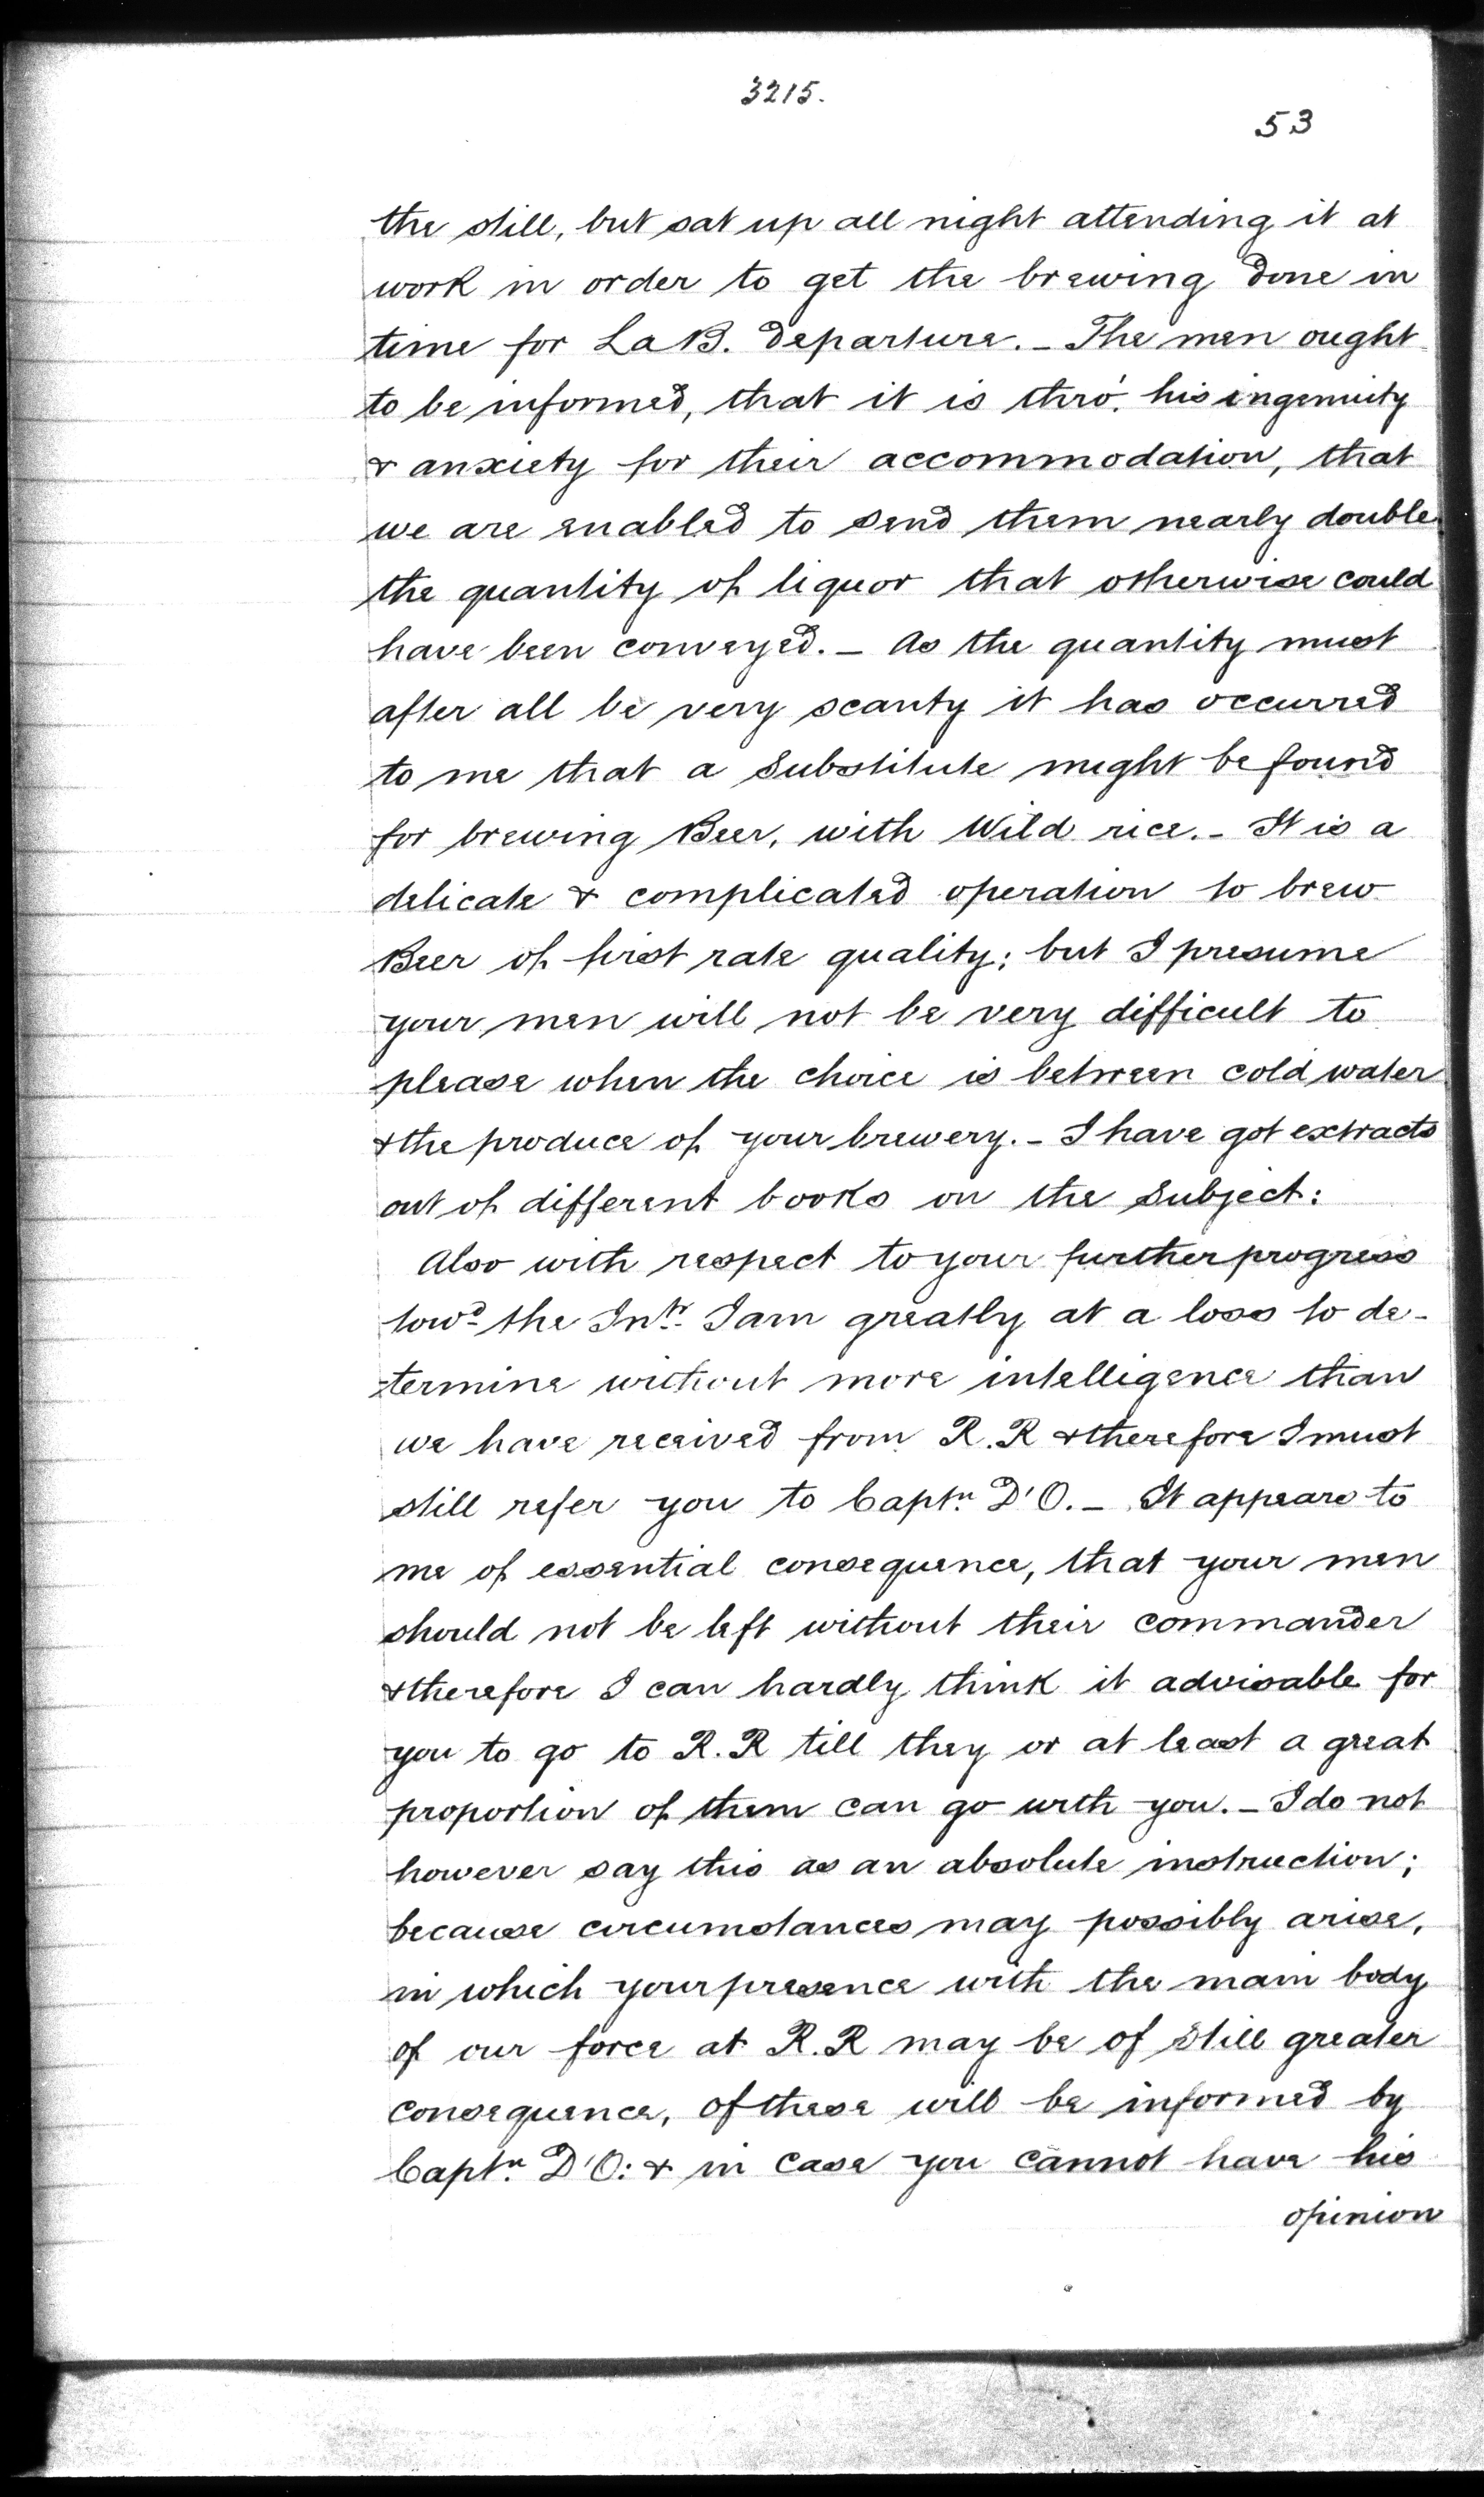 3215.
53
the still, but sat up all night attending it at
work in order to get the brewing done in
time for La B. departure. _ The men ought
to be informed, that it is thro'. his ingenuity
& anxiety for their accommodation, that
we are enabled to send them nearly double
the quantity of liquor that otherwise could
have been conveyed. _ As the quantity must
after all be very scanty it has occurred
to me that a Substitute might be found
for brewing Beer, with Wild rice. _ It is a
delicate & complicated operation to brew
Beer of first rate quality; but I presume
your men will not be very difficult to
please when the choice is between cold water
& the produce of your brewery. _ I have got extracts
out of different books on the Subject:
Also with respect to your further progress
towd the Intr. I am greatly at a loss to de-
-termine without more intelligence than
we have received from R.R & therefore I must
still refer you to Captn. D'O. _ It appears to
me of essential consequence, that your men
should not be left without their commander
& therefore I can hardly think it advisable for
you to go to R.R till they or at least a great
proportion of them can go with you. _ I do not
however say this as an absolute instruction;
because circumstances may possibly arise,
in which your presence with the main body
of our force at R.R may be of Still greater
consequence, of these will be informed by
Captn. D'O: & in case you cannot have his
opinion